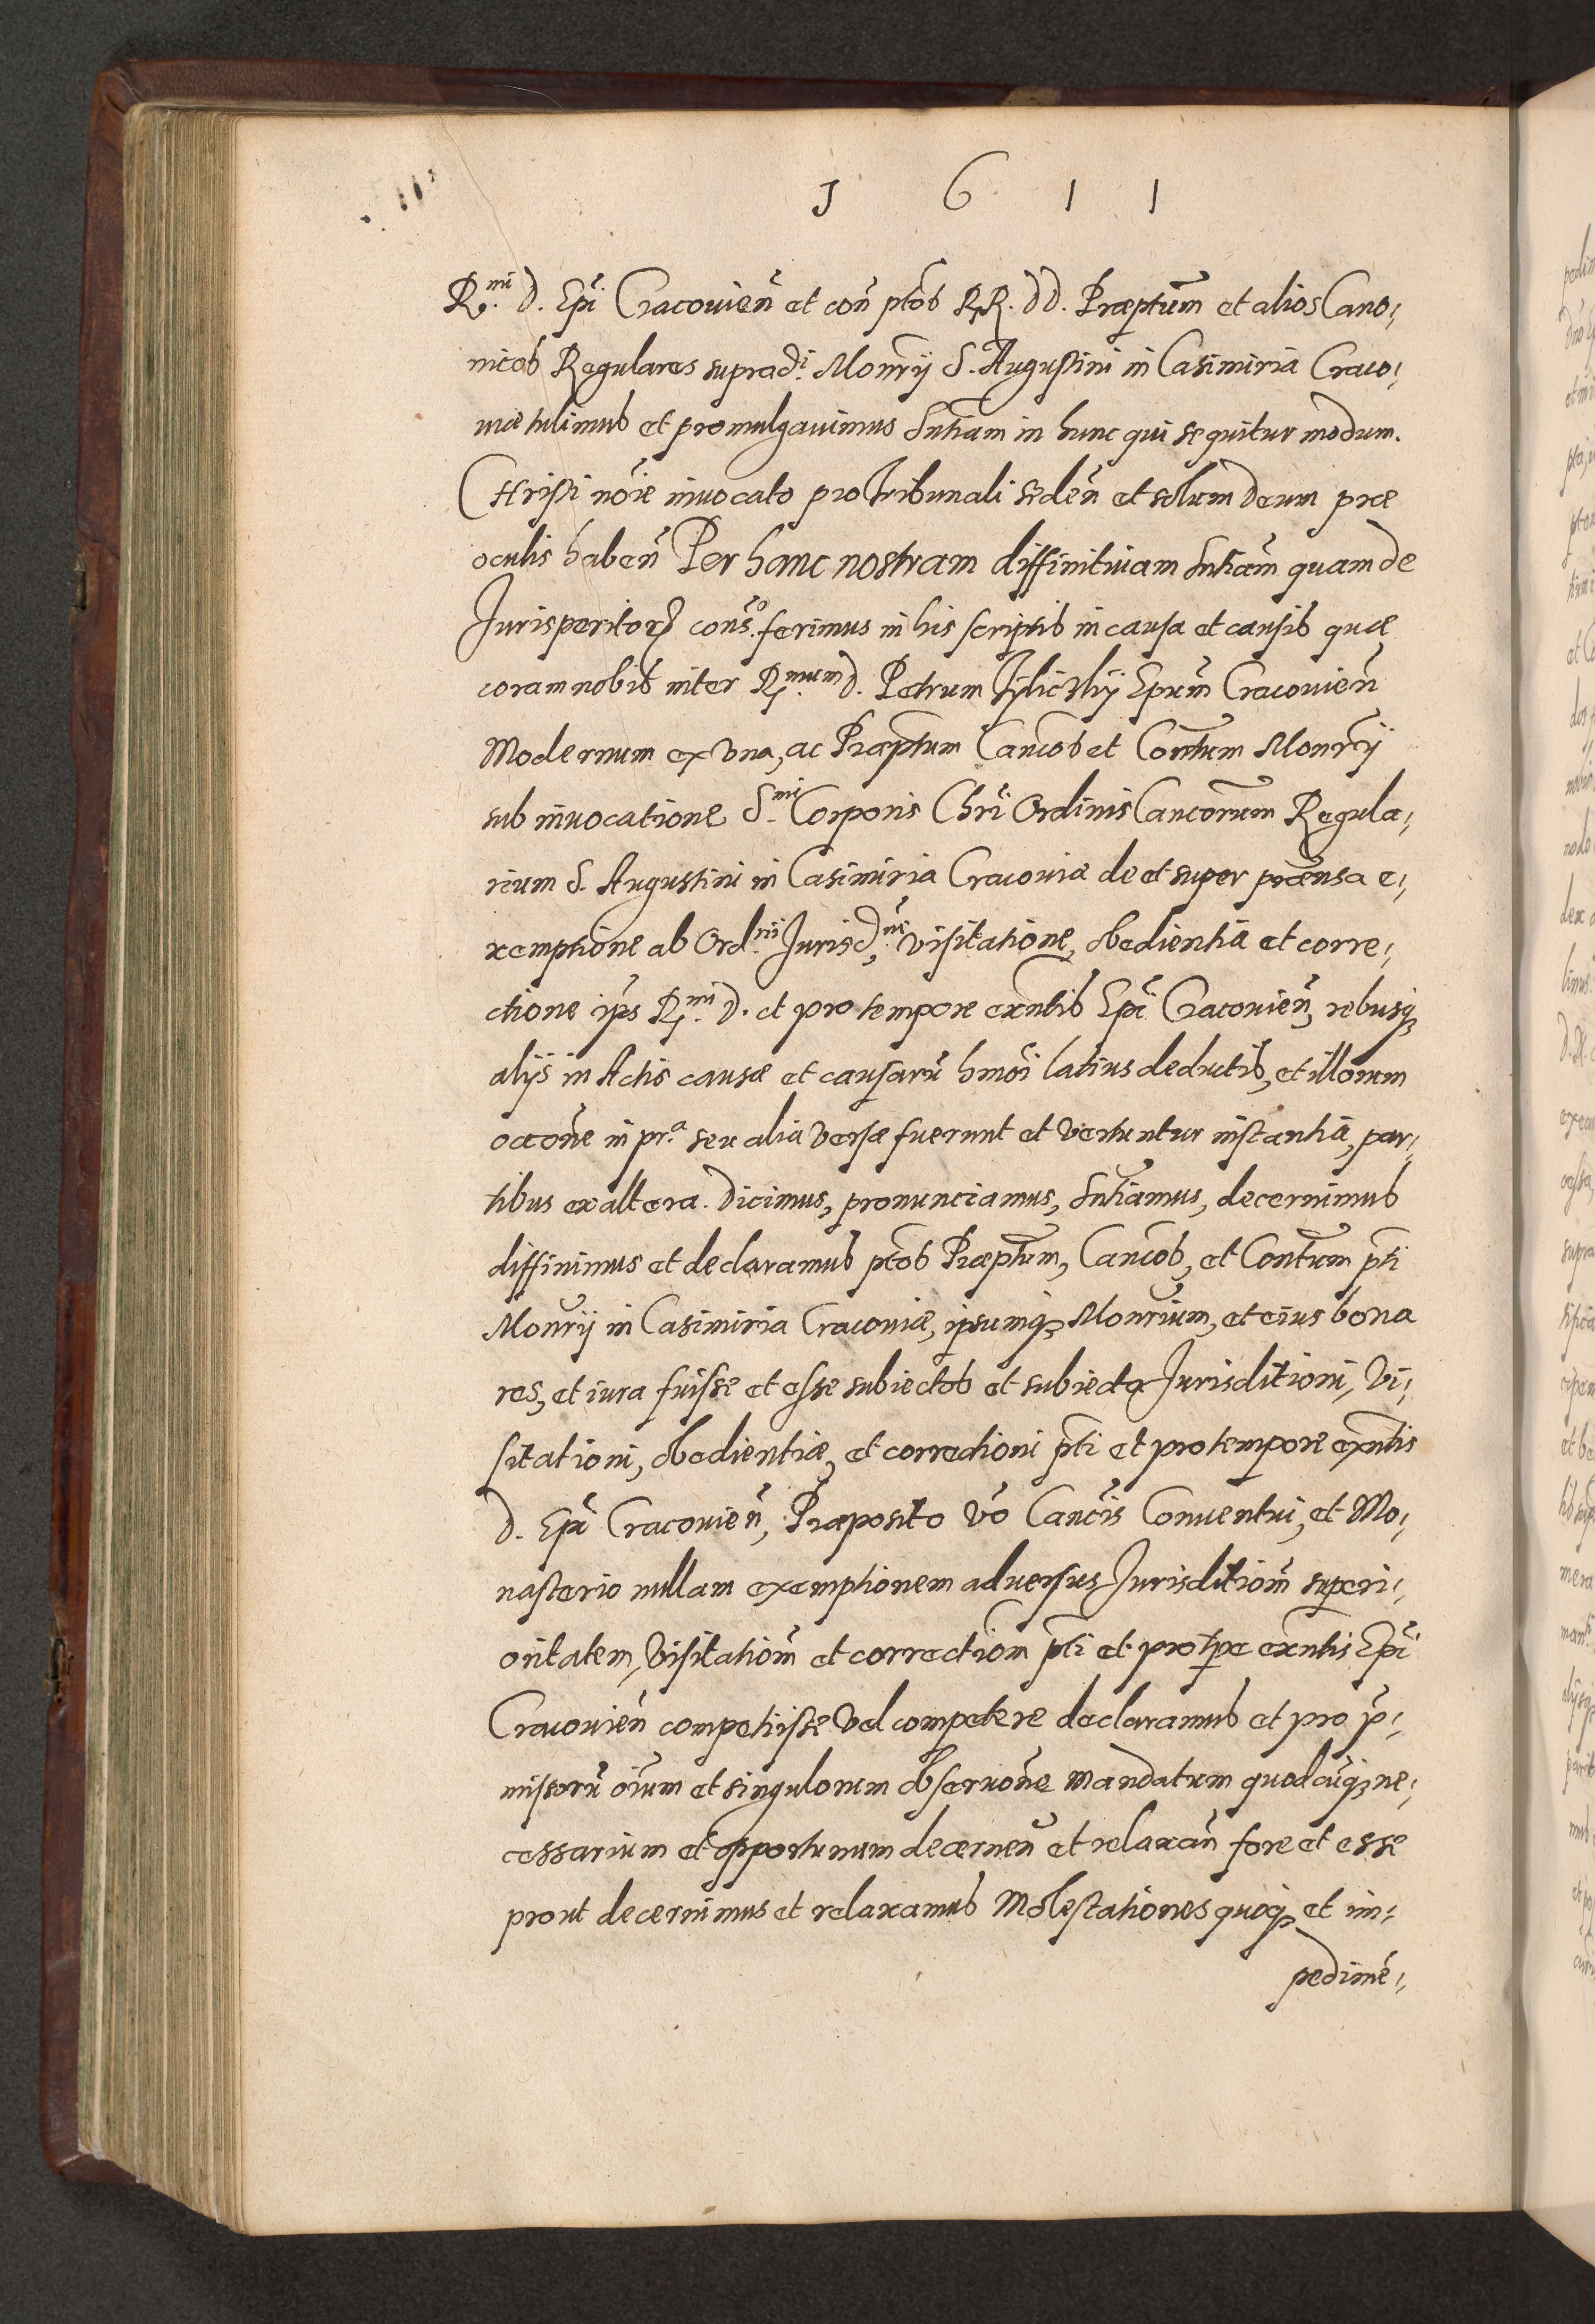 1 6 1 1
R.mi D. Epi Cracovien̄ et con̄ ptos RR. DD. Præptum et alios Cano⸗
nicos Regulares supradi. Monrij S. Augustini in Casimiria Craco⸗
viæ tulimus et promulgavimus Sntiam in hunc qui sequitur modum.
CHristi noīe invocato pro Tribunali seden̄ et solum Deum præ
oculis haben̄ Per hanc nostram diffinitivam Sntiam quam de
Jurisperitorꝝ conso. ferimus in his scriptis in causa et causis quæ
coram nobis inter R.mum D. Petrum Tyliczkij Epum Cracovien̄
Modernum ex una, ac Præptum Cancos et Contum Monrij
sub invocatione S.mi Corporis Chri Ordinis Cancorum Regula⸗
rium S. Augustini in Casimiria Cracoviæ de et super prætensa e⸗
xemptione ab Ord.rii Jurisd.ne, visitatione, obedientia et corre⸗
ctione ips R.mi D. et pro tempore exntis Epi Cracovien̄, rebusqꝫ
alijs in Actis causæ et causarū hmōi latius deductis, et illorum
occone in pr.a seu alia versæ fuerunt et vertuntur instantia, par⸗
tibus ex altera. Dicimus, pronunciamus, Sntiamus, decernimus
diffinimus et declaramus ptos Præptum, Cancos, et Contum pti
Monrij in Casimiria Cracoviæ, ipsumqꝫ Monrium, et eius bona
res, et iura fuisse et esse subiectos et subiecta Jurisditioni, vi⸗
sitationi, obedientiæ, et correctioni pti et pro tempore exntis
D. Epi Cracovien̄, Præposito vō Cancis Conventui, et Mo⸗
nasterio nullam exemptionem adversus Jurisditiom̄ superi⸗
oritatem, visitatiom̄ et correctiom̄ pti et pro tpe exntis Epi
Cracovien̄ competijsse vel competere declaramus et pro p̄⸗
missorū oīum et singulorum observone mandatum quodcūqꝫ ne⸗
cessarium et opportunum decernen̄ et relaxan̄ fore et esse
prout decernimus et relaxamus Molestationes quoqꝫ et im⸗
pedimē⸗